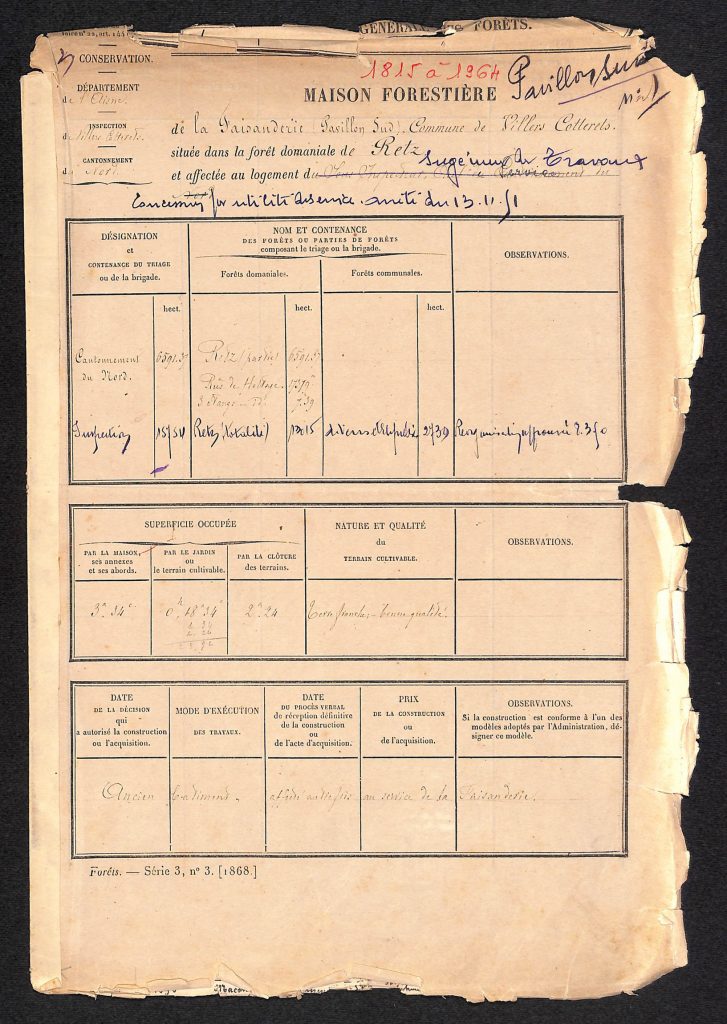 GÉNÉRALE DES FORÊTS.
CONSERVATION.
DÉPARTEMENT
de l'Aisne
INSPECTION
de Villers-Cotterets
CANTONNEMENT
du Nord
1815 à 1964
Pavillon Sud
MAISON FORESTIÈRE
de la Faisanderie (Pavillon Sud), Commune de Villers Cotterets,
située dans la forêt domaniale de Retz
Ingénieur des Travaux
et affectée au logement du
Concession par utilité de service. arrêté du 13.11.51
DÉSIGNATION
et
CONTENANCE DU TRIAGE
ou de la brigade.
NOM ET CONTENANCE
DES FORÊTS OU PARTIES DE FORÊTS
composant le triage ou la brigade.
Forêts domaniales.
Forêts communales.
OBSERVATIONS.
hect.
hect.
hect.
Cantonnement
du Nord.
6591.37
Retz (partie)
6591.37
3 Etangs
Inspection
15754
Retz (totalité)
13015
2739
Réorganisation approuvée 2.3.50
SUPERFICIE OCCUPÉE
PAR LA MAISON,
ses annexes
et ses abords.
PAR LE JARDIN
ou
le terrain cultivable.
PAR LA CLÔTURE
des terrains.
NATURE ET QUALITÉ
du
TERRAIN CULTIVABLE.
OBSERVATIONS.
3a 34c
0h 18a 34c
2a 24
Terre franche, – bonne qualité.
DATE
DE LA DÉCISION
qui
a autorisé la construction
ou l'acquisition.
MODE D'EXÉCUTION
DES TRAVAUX.
DATE
DU PROCÈS VERBAL
de réception définitive
de la construction
ou
de l'acte d'acquisition.
PRIX
DE LA CONSTRUCTION
ou
de l'acquisition.
OBSERVATIONS.
Si la construction est conforme à l'un des
modèles adoptés par l'Administration, dé-
signer ce modèle.
Ancien bâtiment. affecté autrefois au service de la Faisanderie.
Forêts. — Série 3, n° 3. [1868.]